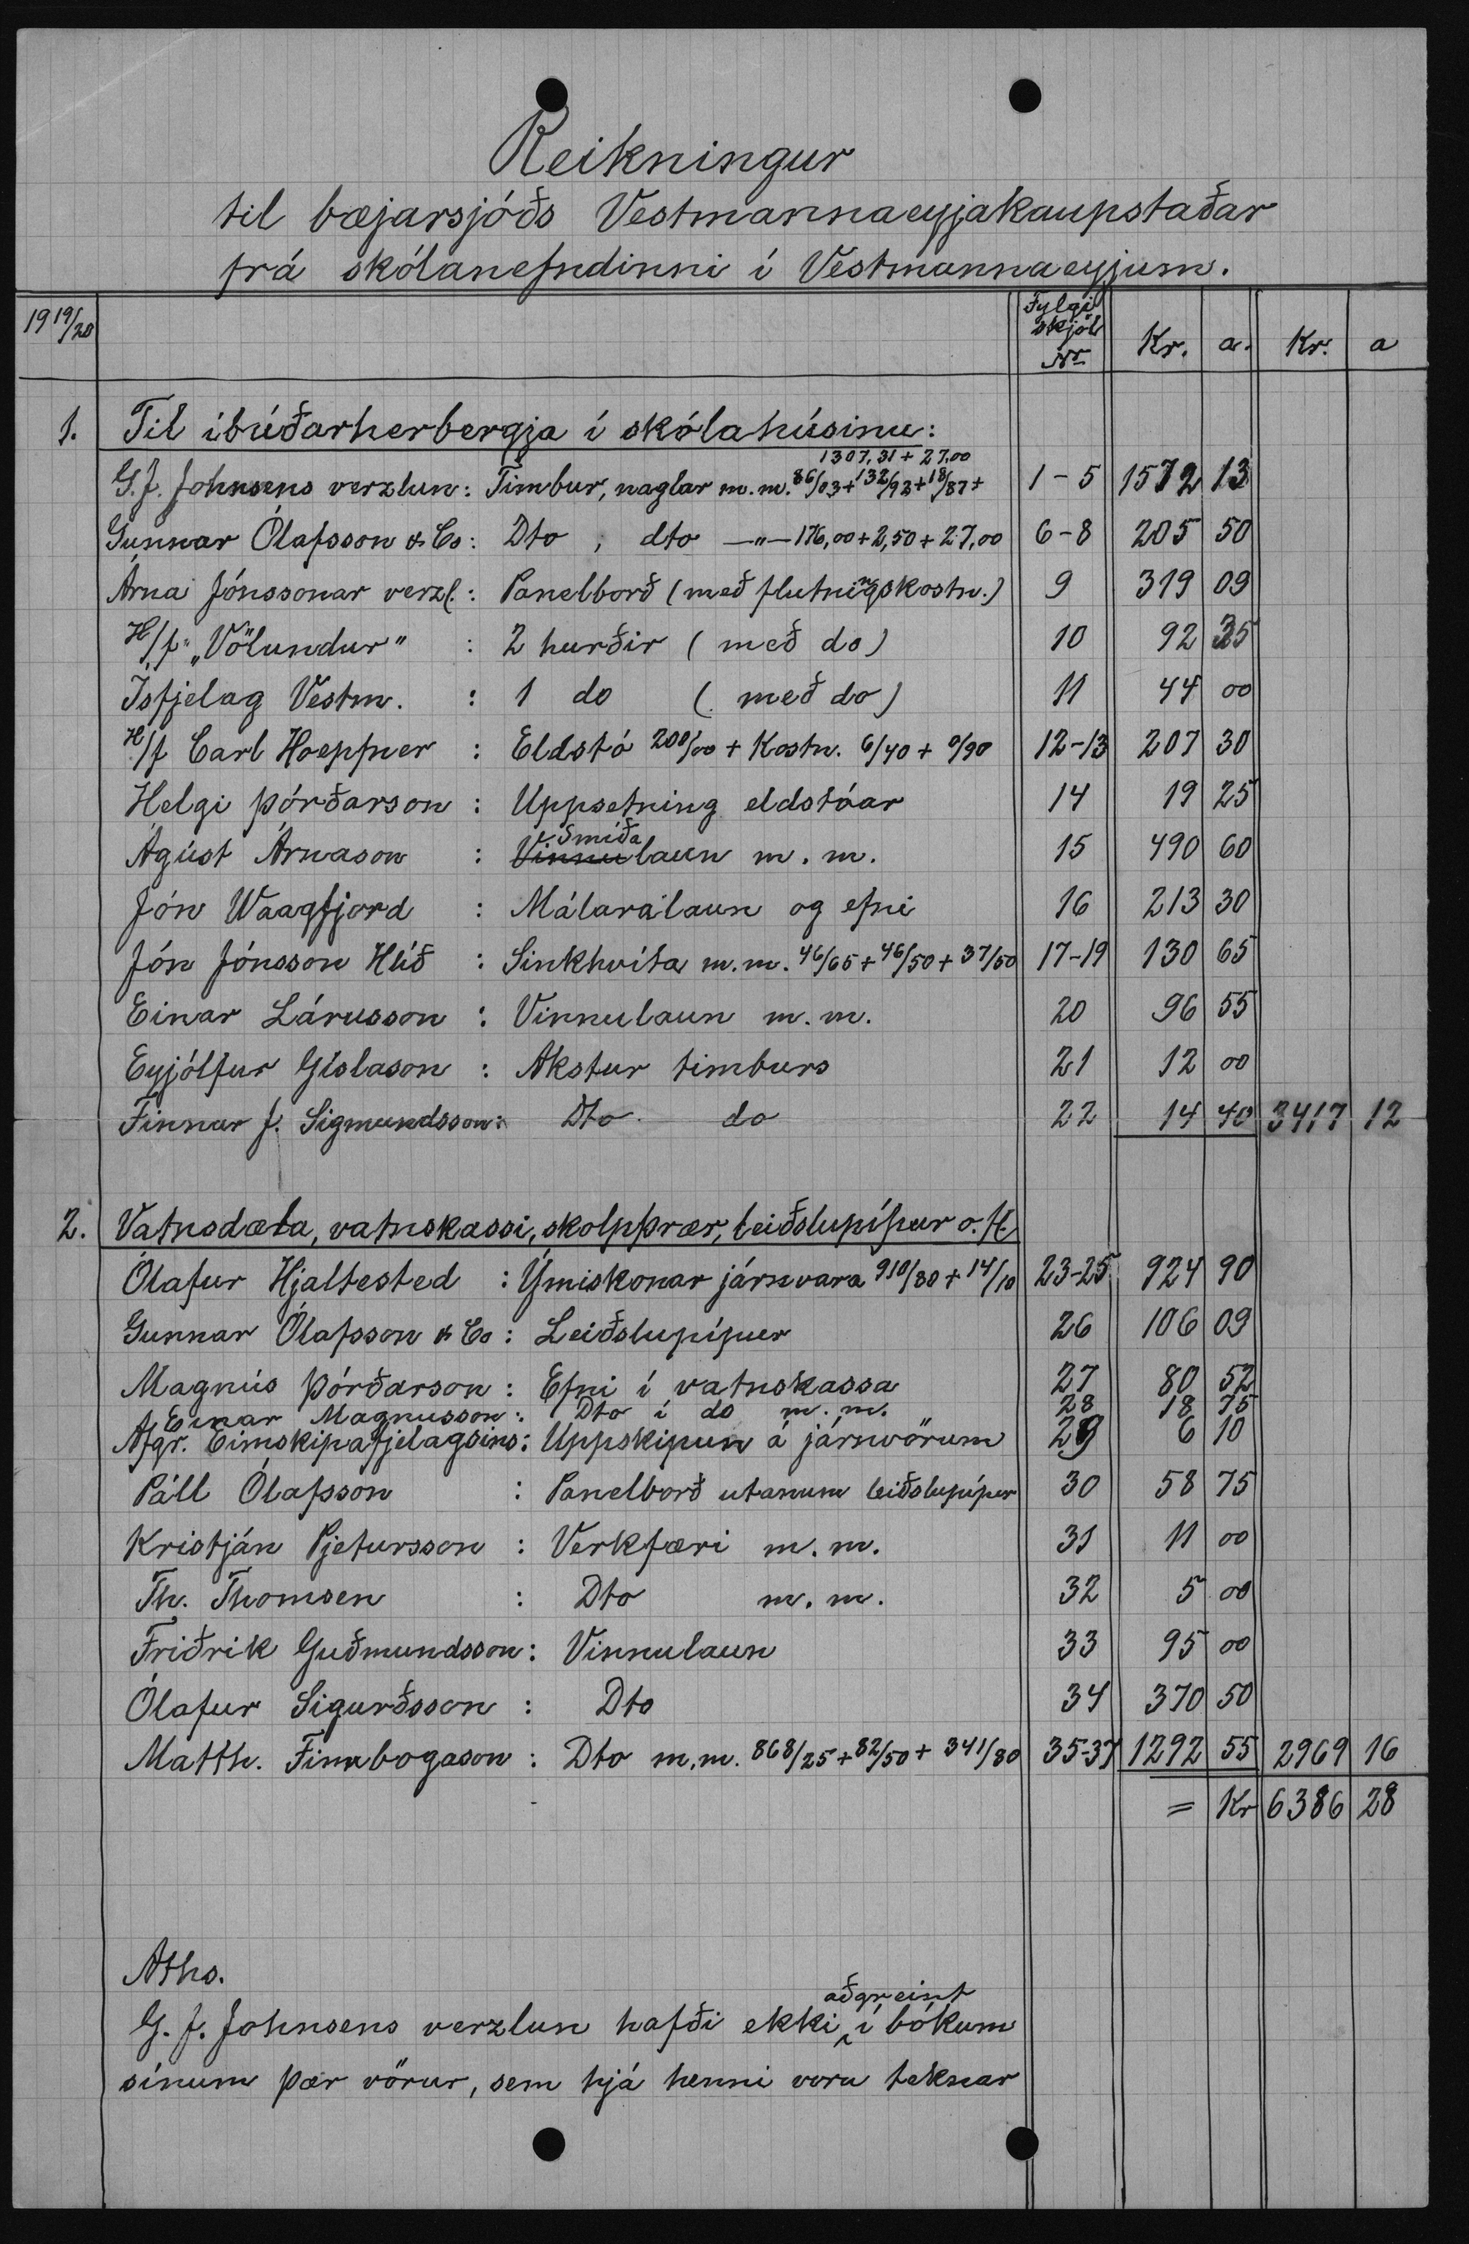 Reikningur
til bæjarsjóðs Vestmannaeyjakaupstaðar
frá skólanefndinni í Vestmannaeyjum.
19 19/20 Fylgiskjöl Nr Kr. a. Kr. a
1. Til íbúðarherbergja í skólahúsinu:
1307,31 + 27,00
G. J. Johnsens verzlun: Timbur, naglar m.m. 86/03 + 132/92 + 18/87 + 1-5 1572 13
Gunnar Ólafsson & Co: Dto, dto —"— 176,00 + 2,50 + 27,00 6-8 205 50
Árna Jónssonar verzl.: Panelborð (með flutningskostn.) 9 319 09
H/f „Völundur" : 2 hurðir (með do) 10 92 35
Ísfjelag Vestm. : 1 do (með do) 11 44 00
H/f Carl Hoepfner : Eldstó 200/00 + Kostn. 6/40 + 0/90 12-13 207 30
Helgi Þórðarson : Uppsetning eldstóar 14 19 25
Ágúst Árnason : Vinnu smíðalaun m. m. 15 490 60
Jón Waagfjord : Málaralaun og efni 16 213 30
Jón Jónsson Hlíð : Sinkhvíta m.m. 46/65 + 46/50 + 37/50 17-19 130 65
Einar Lárusson : Vinnulaun m. m. 20 96 55
Eyjólfur Gíslason : Akstur timburs 21 12 00
Finnur J. Sigmundsson: Dto do 22 14 40 3417 12
2. Vatnsdæla, vatnskassi, skolpþrær, leiðslupípur o. fl.
Ólafur Hjaltested : Ýmiskonar járnvara 910/80 + 14/10 23-25 924 90
Gunnar Ólafsson & Co : Leiðslupípur 26 106 09
Magnús Þórðarson : Efni í vatnskassa 27 80 52
Einar Magnusson : Dto í do m. m. 28 18 75
Afgr. Eimskipafjelagsins : Uppskipun á járnvörum 29 6 10
Páll Ólafsson : Panelborð utanum leiðslupípur 30 58 75
Kristján Pjetursson : Verkfæri m. m. 31 11 00
Th. Thomsen : Dto m. m. 32 5 00
Friðrik Guðmundsson : Vinnulaun 33 95 00
Ólafur Sigurðsson : Dto 34 370 50
Matth. Finnbogason : Dto m. m. 868/25 + 82/50 + 341/80 35-37 1292 55 2969 16
= Kr 6386 28
Aths.
G. J. Johnsens verzlun hafði ekki aðgreint í bókum
sínum þær vörur, sem hjá henni voru teknar